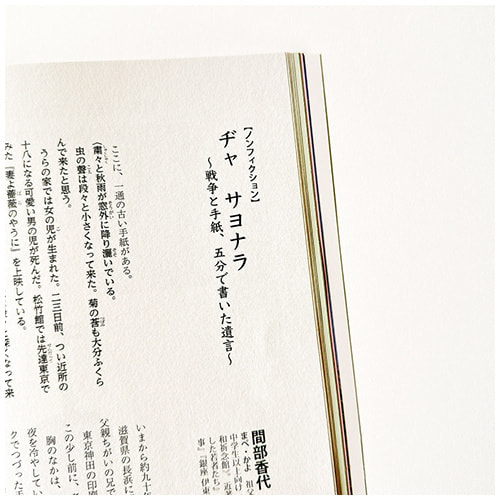 【ノンフィクション】
ヂャ サヨナラ
〜戦争と手紙、五分で書いた遺言〜
ここに、一通の古い手紙がある。
(粛々と秋雨が窓外に降り灑いでいる。
虫の聲は段々と小さくなって来た。菊の莟も大分ふくら
んで来たと思う。
うらの家では女の児が生まれた。二三日前、つい近所の
十八になる可愛い男の児が死んだ。松竹館では先達東京で
みた『妻よ薔薇のやうに』を上映している。
間部香代
まべ・かよ
中学生以上向け
和祈念館
した若者たち
事』『銀座 伊東
いまから約九十
滋賀県の長浜に
父親ちがいの兄で
東京神田の印刷
この少し前に、
胸のなかは、
夜を冷やしてい
クでつづった手